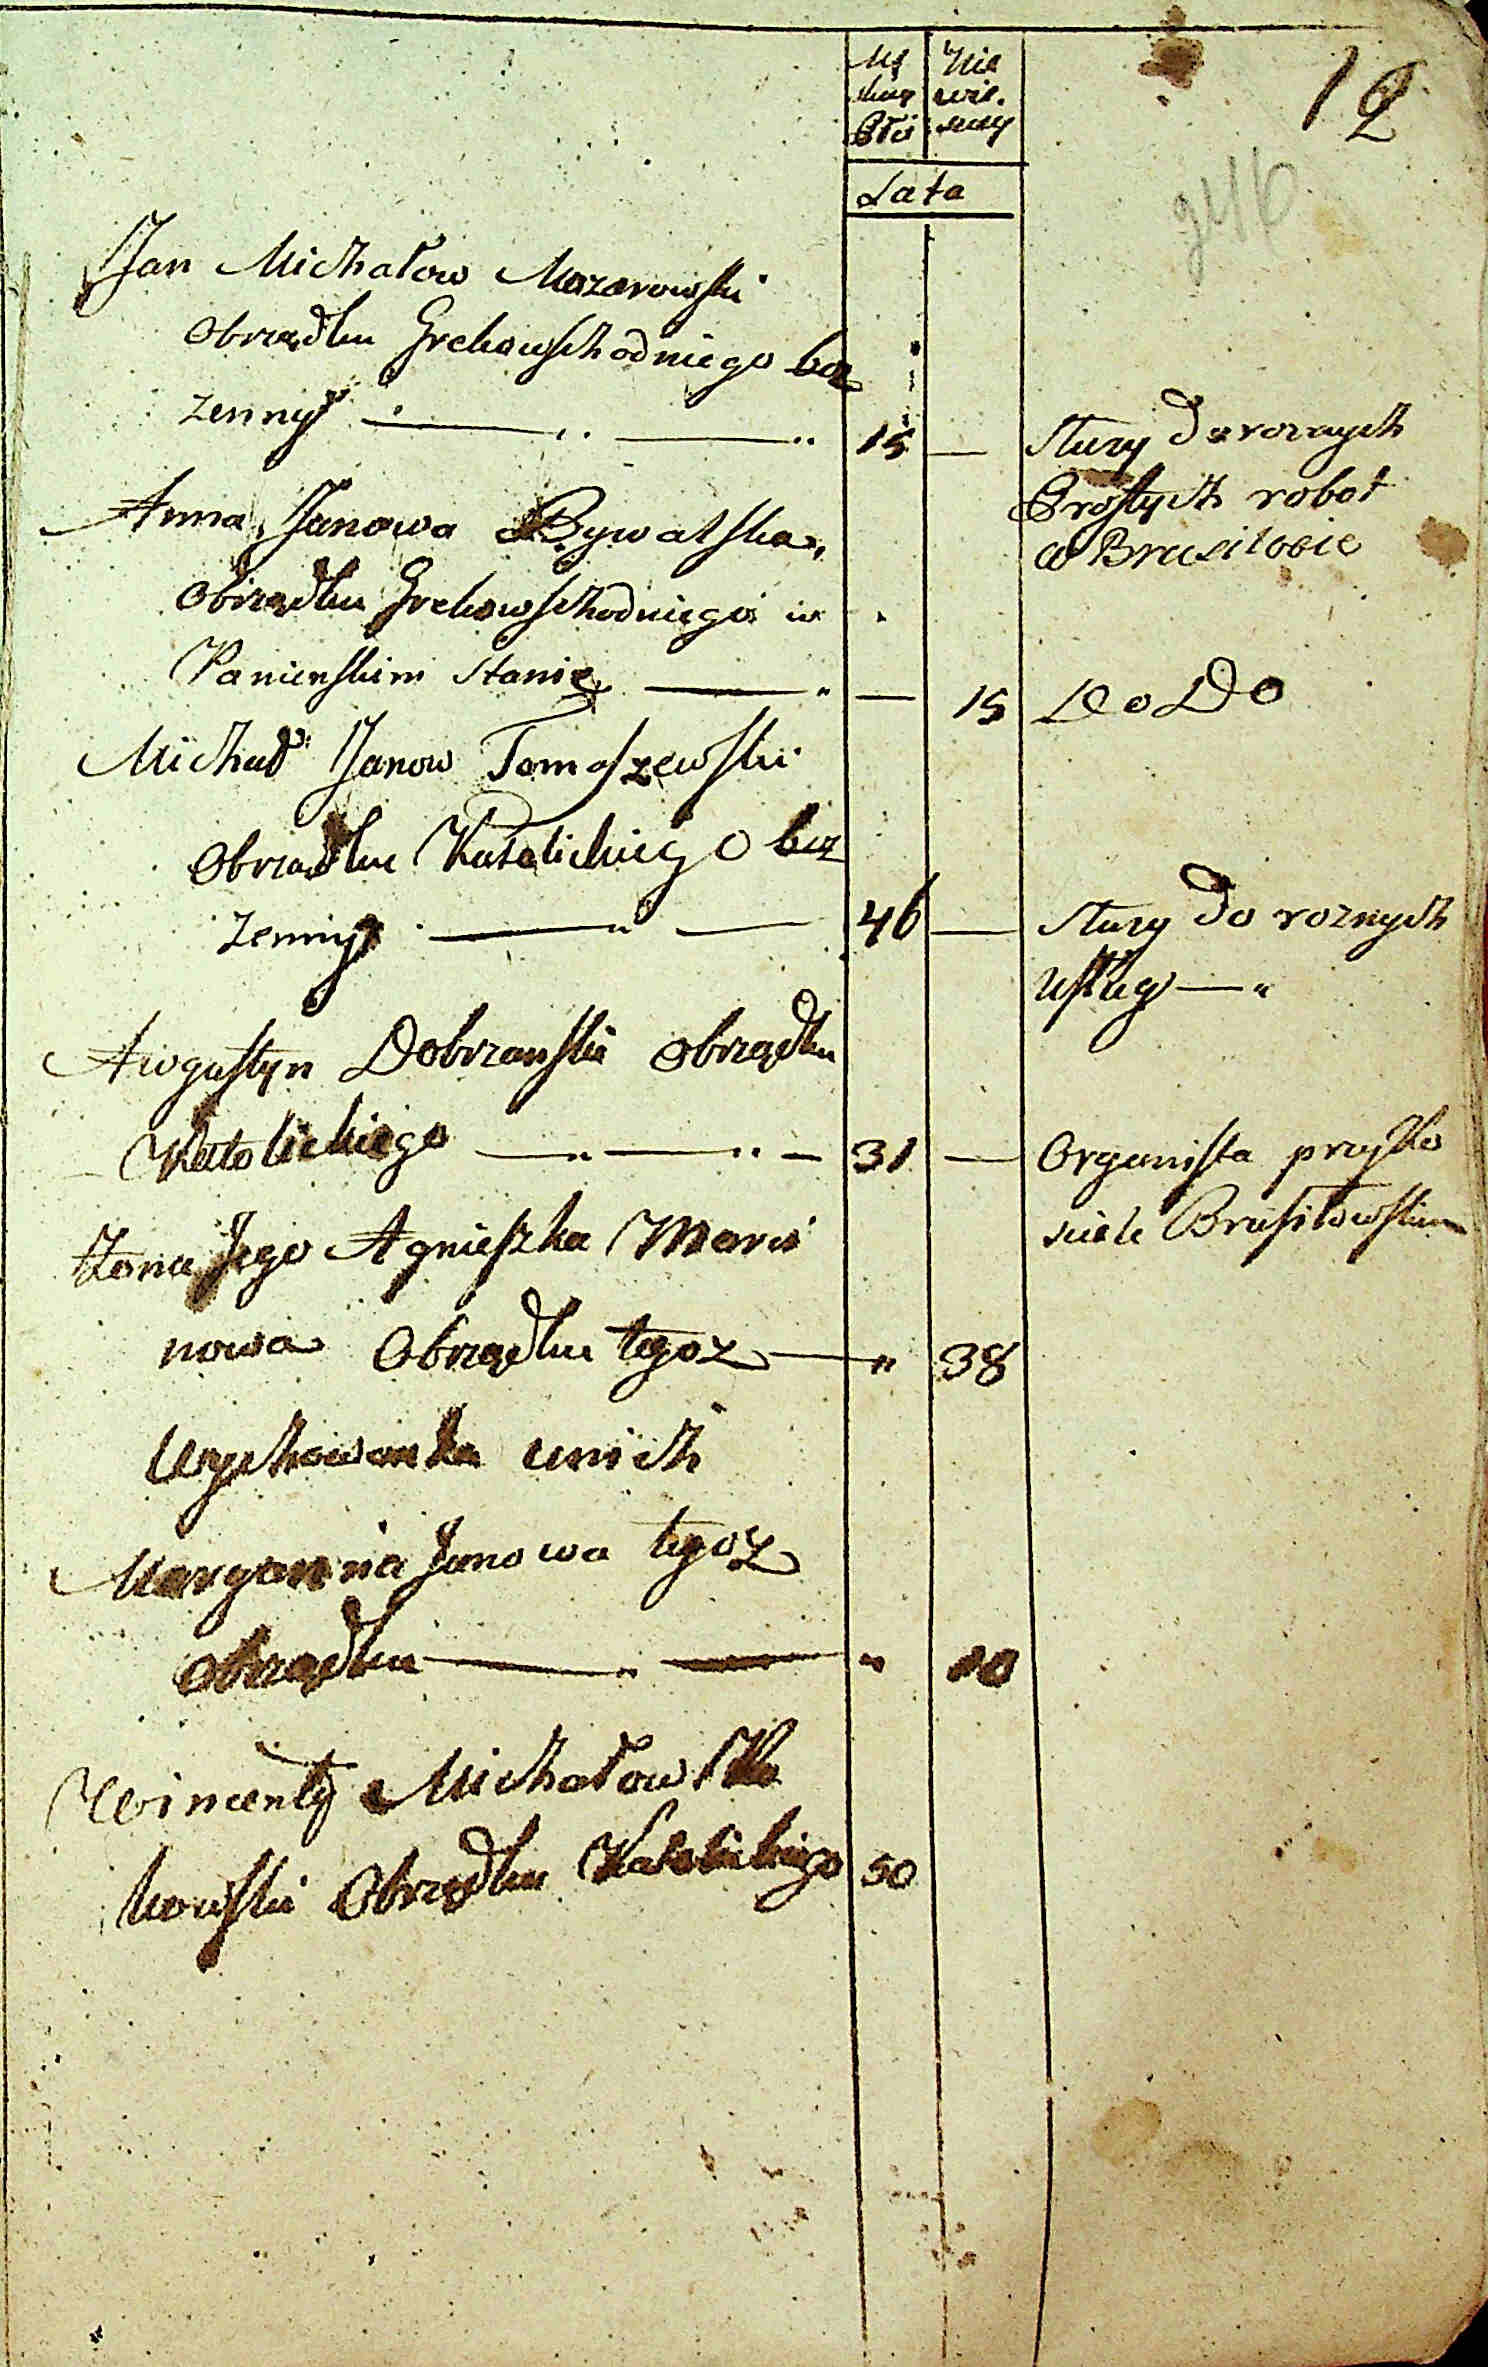 Mę Nie
skey wie.
Płći sciey
12
246
Lata
Jan Michałow Mazarowski
Obrządku Grekowschodniego bez
zenny 15
Służy do roznych
Prostych robot
w Brusiłowie
Anna Janowa Bywalska
Obrządku Grekowschodniego w
Panienskim Stanie 15 Do Do
Michał Janow Tomaszewski
Obrządku Katolickiego bez
zenny 46 Służy do roznych
Usług
Awgustyn Dobrzanski Obrządku
Katolickiego 31 Organista przy Ko
sciele Brusiłowskim
Zona Jego Agnieszka Marci
nowa Obrządku tegoz 38
Wychowanka unich
Maryanna Janowa tegoz
obrządku 10
Wincenty Michałow
kowski Obrządku Katolickiego 50